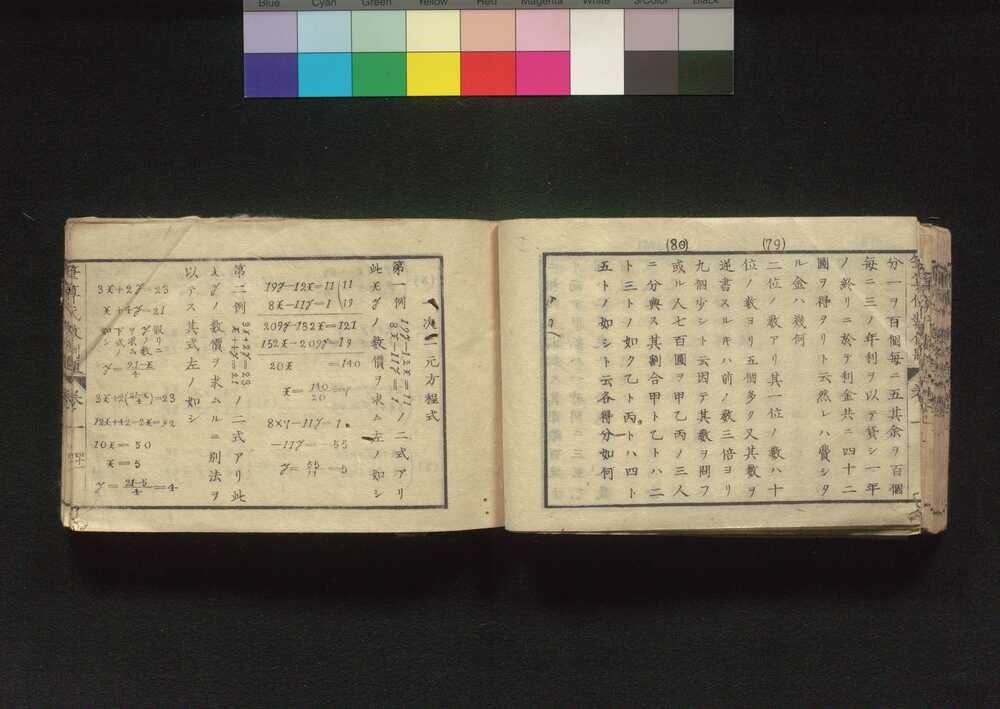 Blue Cyan Green Yellow Red Magenta White 3/Color Black
分一ヲ百個毎ニ五其余ヲ百個
毎ニ三ノ年利ヲ以テ貸シ一年
ノ終リニ於テ利金共ニ四十二
圓ヲ得タリト云然レハ費シタ
ル金ハ幾何
(79)
二位ノ数アリ其一位ノ数ハ十
位ノ数ヨリ五個多ク又其数ヲ
逆書スルキハ前ノ数三倍ヨリ
九個少シト云因テ其数ヲ問フ
(80)
或ル人七百圓ヲ甲乙丙ノ三人
ニ分與ス其割合甲ト乙トハ二
ト三トノ如ク乙ト丙トハ四ト
五トノ如シト云各得分如何
次二元方程式
第一例 19y-12x=11 8x-11y=1 ノ二式アリ
此xyノ数價ヲ求ム左ノ如シ
19y-12x=11 11
8x-11y=1 19
209y-132x=121
152x-209y=19
20x=140
x=140/20=7
8×7-11y=1
-11y=-55
y=55/11=5
第二例 3x+2y=23 x+4y=21 ノ二式アリ此
xyノ数價ヲ求ムルニ別法ヲ
以テス其式左ノ如シ
3x+2y=23
x+4y=21
y=21-x/4
3x+2(21-x/4)=23
12x+42-2x=92
10x=50
x=5
y=21-5/4=4